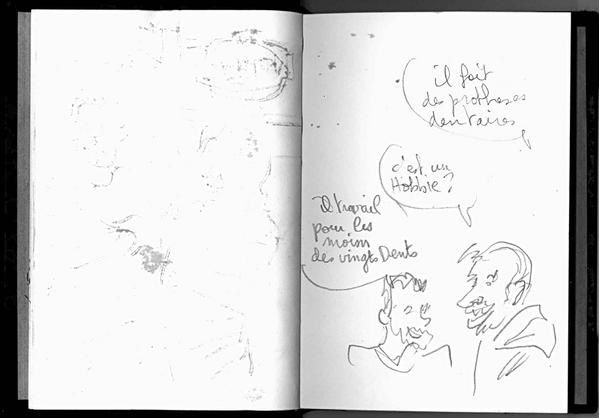 il fait
des protheses
dentaires
c'est un
Hobbie?
il travail
pour les
moins
des vingts Dents